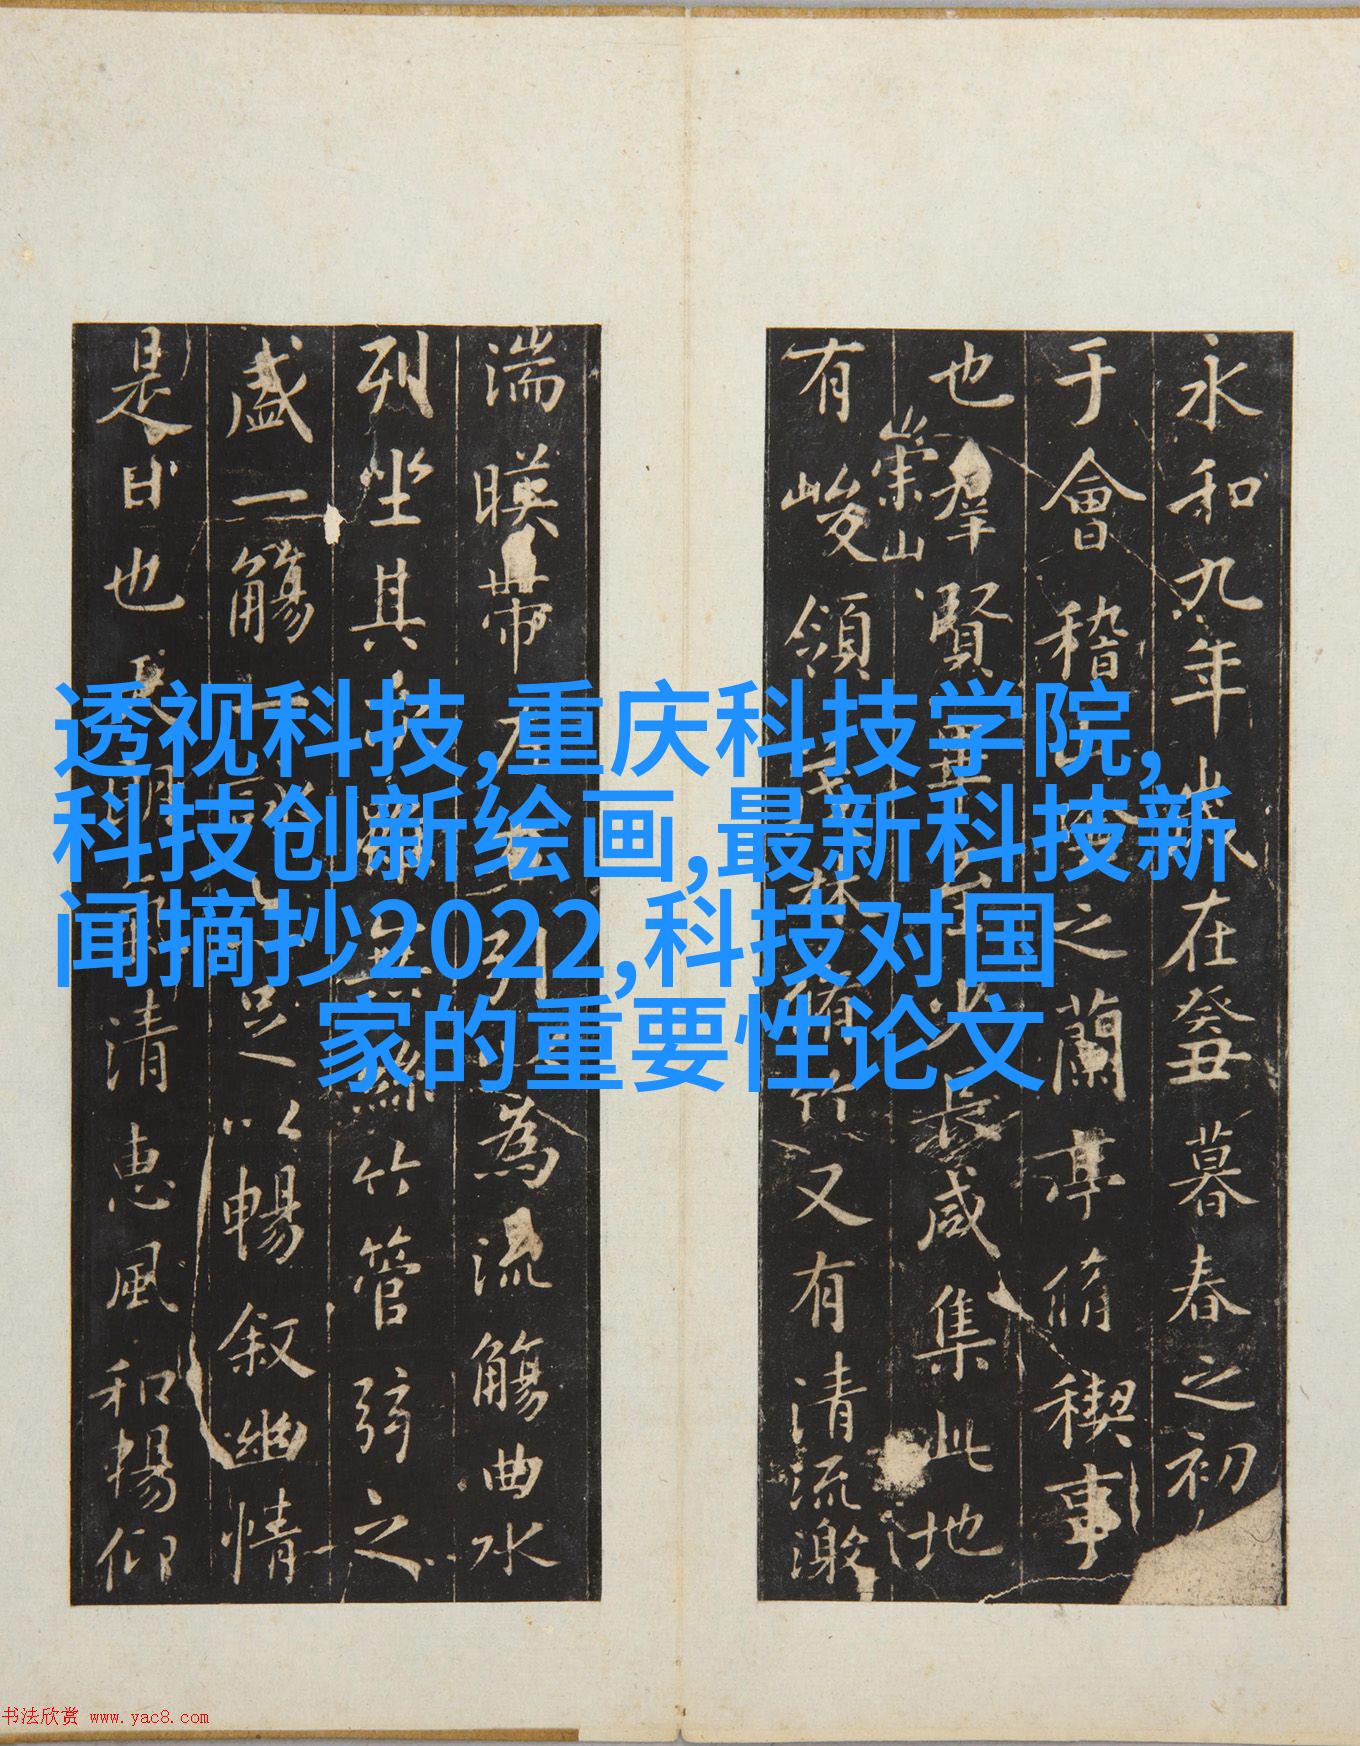 永和九年歲在癸丑暮春之初
于會稽山陰之蘭亭脩稧事
也羣賢畢至少長咸集此地
崇山
有峻領茂林脩竹又有清流激
湍暎帶左右引以為流觴曲水
列坐其次雖無絲竹管弦之
盛一觴一詠亦足以暢叙幽情
是日也天朗氣清惠風和暢仰
透视科技,重庆科技学院,
科技创新绘画,最新科技新
闻摘抄2022,科技对国
家的重要性论文
书法欣赏 www.yac8.com